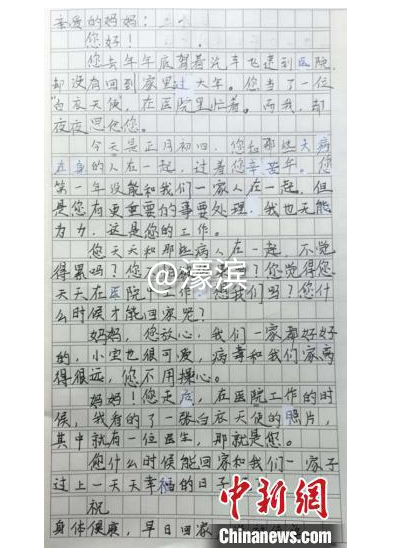 亲爱的妈妈：
您好！
您去年年底驾着汽车飞速到医院，
却没有回到家里过大年。您当了一位
“白衣天使”，在医院里忙着。而我，却
夜夜思念您。
今天是正月初四，您和那些天病
在身的人在一起，过着您辛苦年。您
第一年没能和我们一家人在一起。但
是您有更重要的事要处理，我也无能
为力，这是您的工作。
您天天和那些病人在一起，不觉
得累吗？您
？您觉得您
天天在医院工作，您我们吗？您什
么时候才能回家呢？
妈妈，您放心，我们一家都好好
的，小宝也很可爱，病毒和我们家离
得很远，您不用操心。
妈妈！您走后，在医院工作的时
候，我看的了一张白衣天使的照片，
其中就有一位医生，那就是您。
您什么时候能回家和我们一家子
过上一天天幸福的日子
祝
身体健康，早日回家
@濠滨
中新网
Chinanews.com